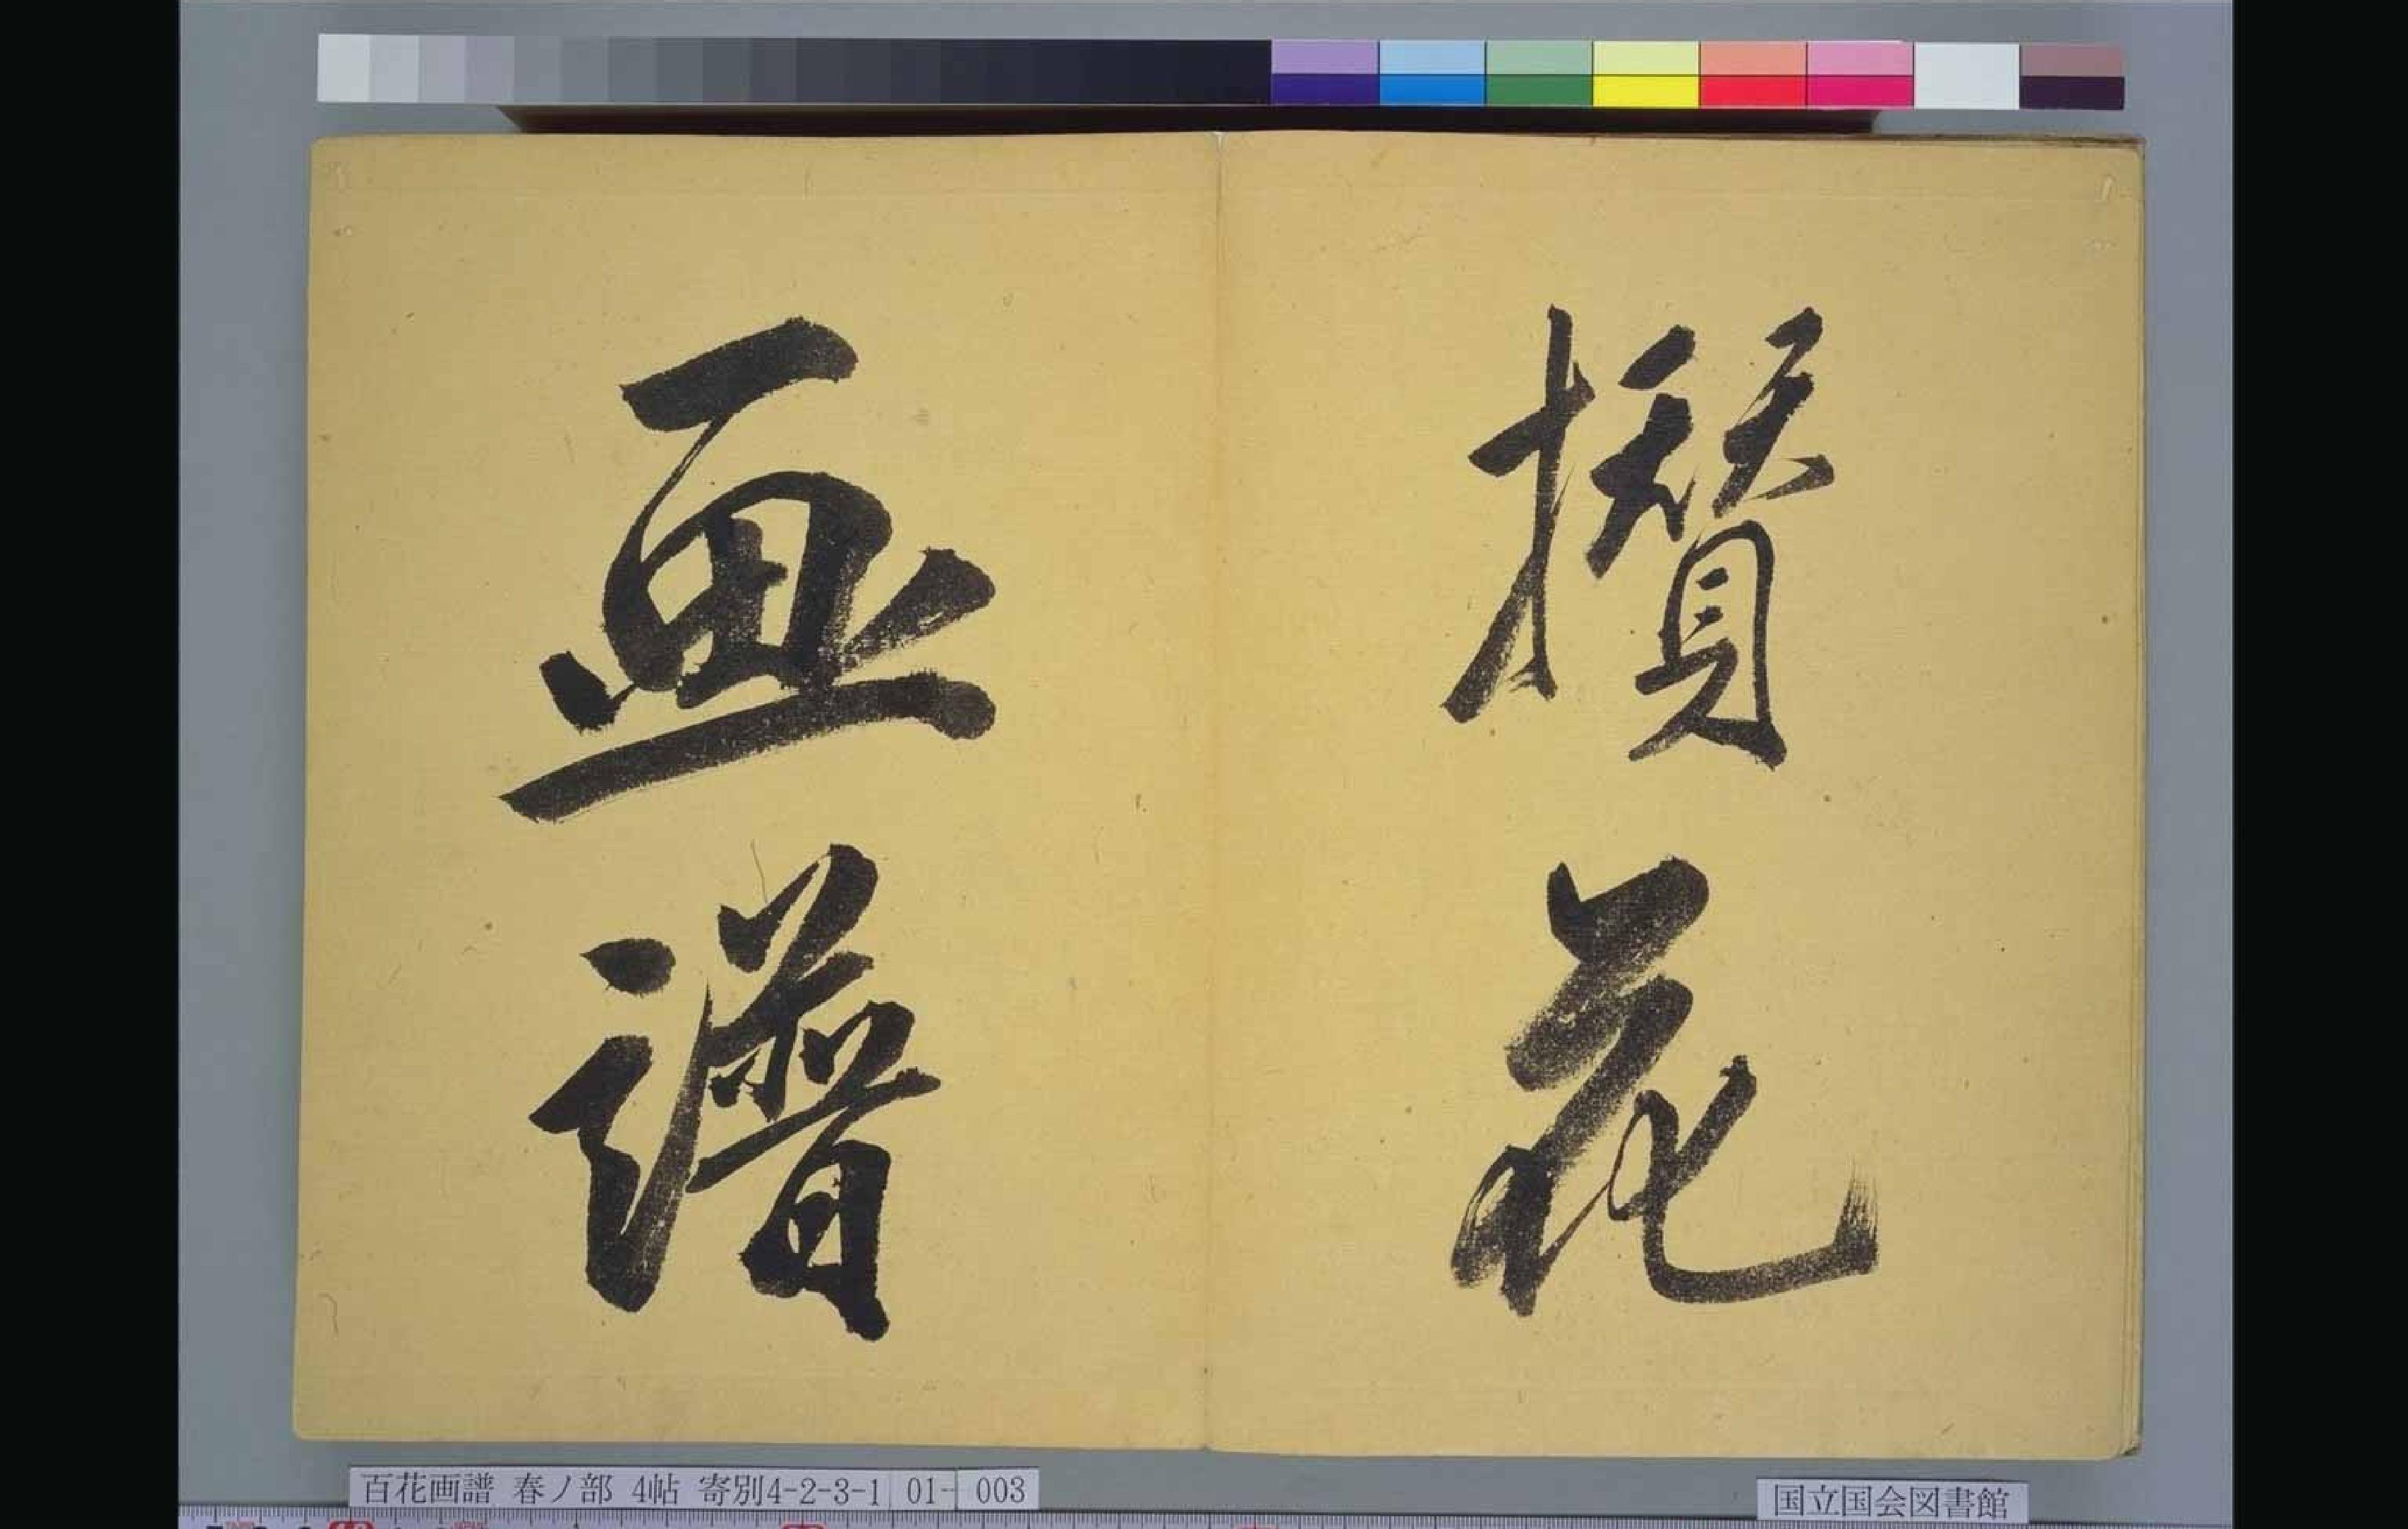 攢花
画譜
百花画譜 春ノ部 4帖 寄別4-2-3-1 01- 003
国立国会図書館